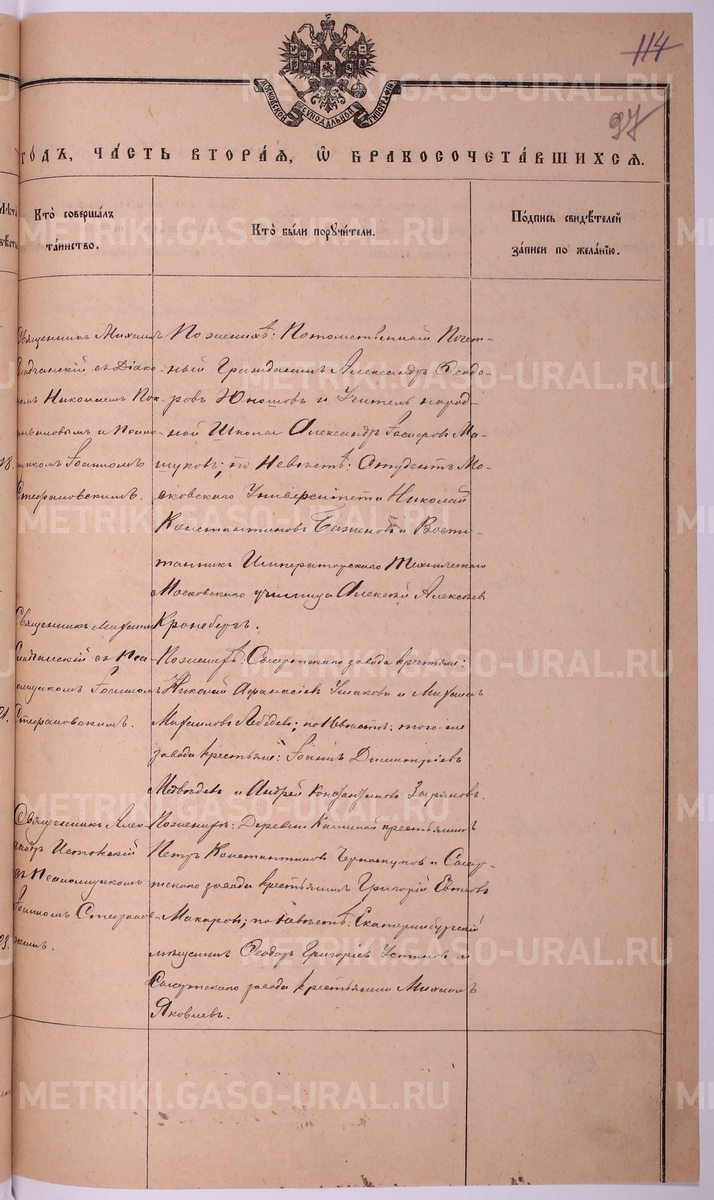 114
97
МОСКОВСКОЙ СУНОДАЛЬНОЙ ТИПОГРАФІИ
ГОДЪ, ЧАСТЬ ВТОРАЯ, Ѿ БРАКОСОЧЕТАВШИХСЯ.
Кто совершалъ таинство.
Кто были поручители.
Подпись свидѣтелей записи по желанію.
Священникъ Михаилъ
съ Діако-
номъ Николаемъ
и Псалом-
щикомъ Іоанномъ
Стефановскимъ.
По женихѣ: Потомственный Почет-
ный Гражданинъ Александръ Ѳеодо-
ровъ Юношовъ и Учитель народ-
ной Школы Александръ Ма-
шуковъ; по Невѣстѣ: Студентъ Мо-
сковскаго Университета Николай
Константиновъ Баженовъ и Воспи-
танникъ Императорскаго Техническаго
Московскаго училища Алексѣй Алексѣевъ
Кронебергъ.
18.
Священникъ Михаилъ
съ Пса-
ломщикомъ Іоанномъ
Стефановскимъ.
По женихѣ: Сысертскаго завода крестьяне:
Николай Афанасіевъ Ушаковъ и Михаилъ
Михаиловъ Лебедевъ; по Невѣстѣ: того-же
завода крестьяне: Іоаннъ Димитріевъ
Медвѣдевъ и Андрей Константиновъ
21.
Священникъ Алек-
сандръ
съ Псаломщикомъ
Іоанномъ Стефанов-
скимъ.
По женихѣ: Деревни крестьянинъ
Петръ Константиновъ Черноскуловъ и Сысерт-
скаго завода крестьянинъ Григорій
Макаровъ; по Невѣстѣ: Екатеринбургскій
мѣщанинъ Ѳеодоръ Григоріевъ Устиновъ и
Сысертскаго завода крестьянинъ Михаилъ
Яковлевъ.
23.
METRIKI.GASO-URAL.RU